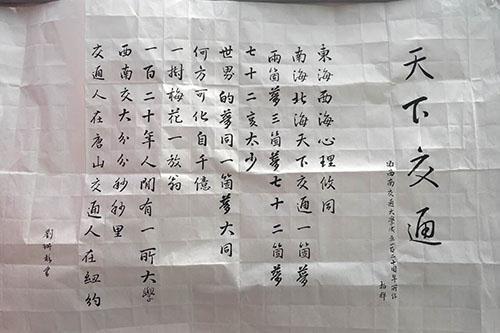 天下交通
西南交通大學
東海西海心理攸同
南海北海天下交通一箇夢
兩箇夢三箇夢七十二箇夢
七十二太少
世界的夢同一箇夢大同
何方可化自千億
一樹梅花一放翁
一百二十年人間有一所大學
西南交大分分秒秒里
交通人在唐山交通人在紐約
劉書